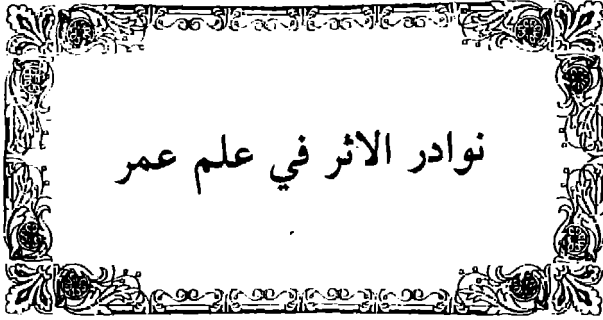 نوادر الاثر في علم عمر